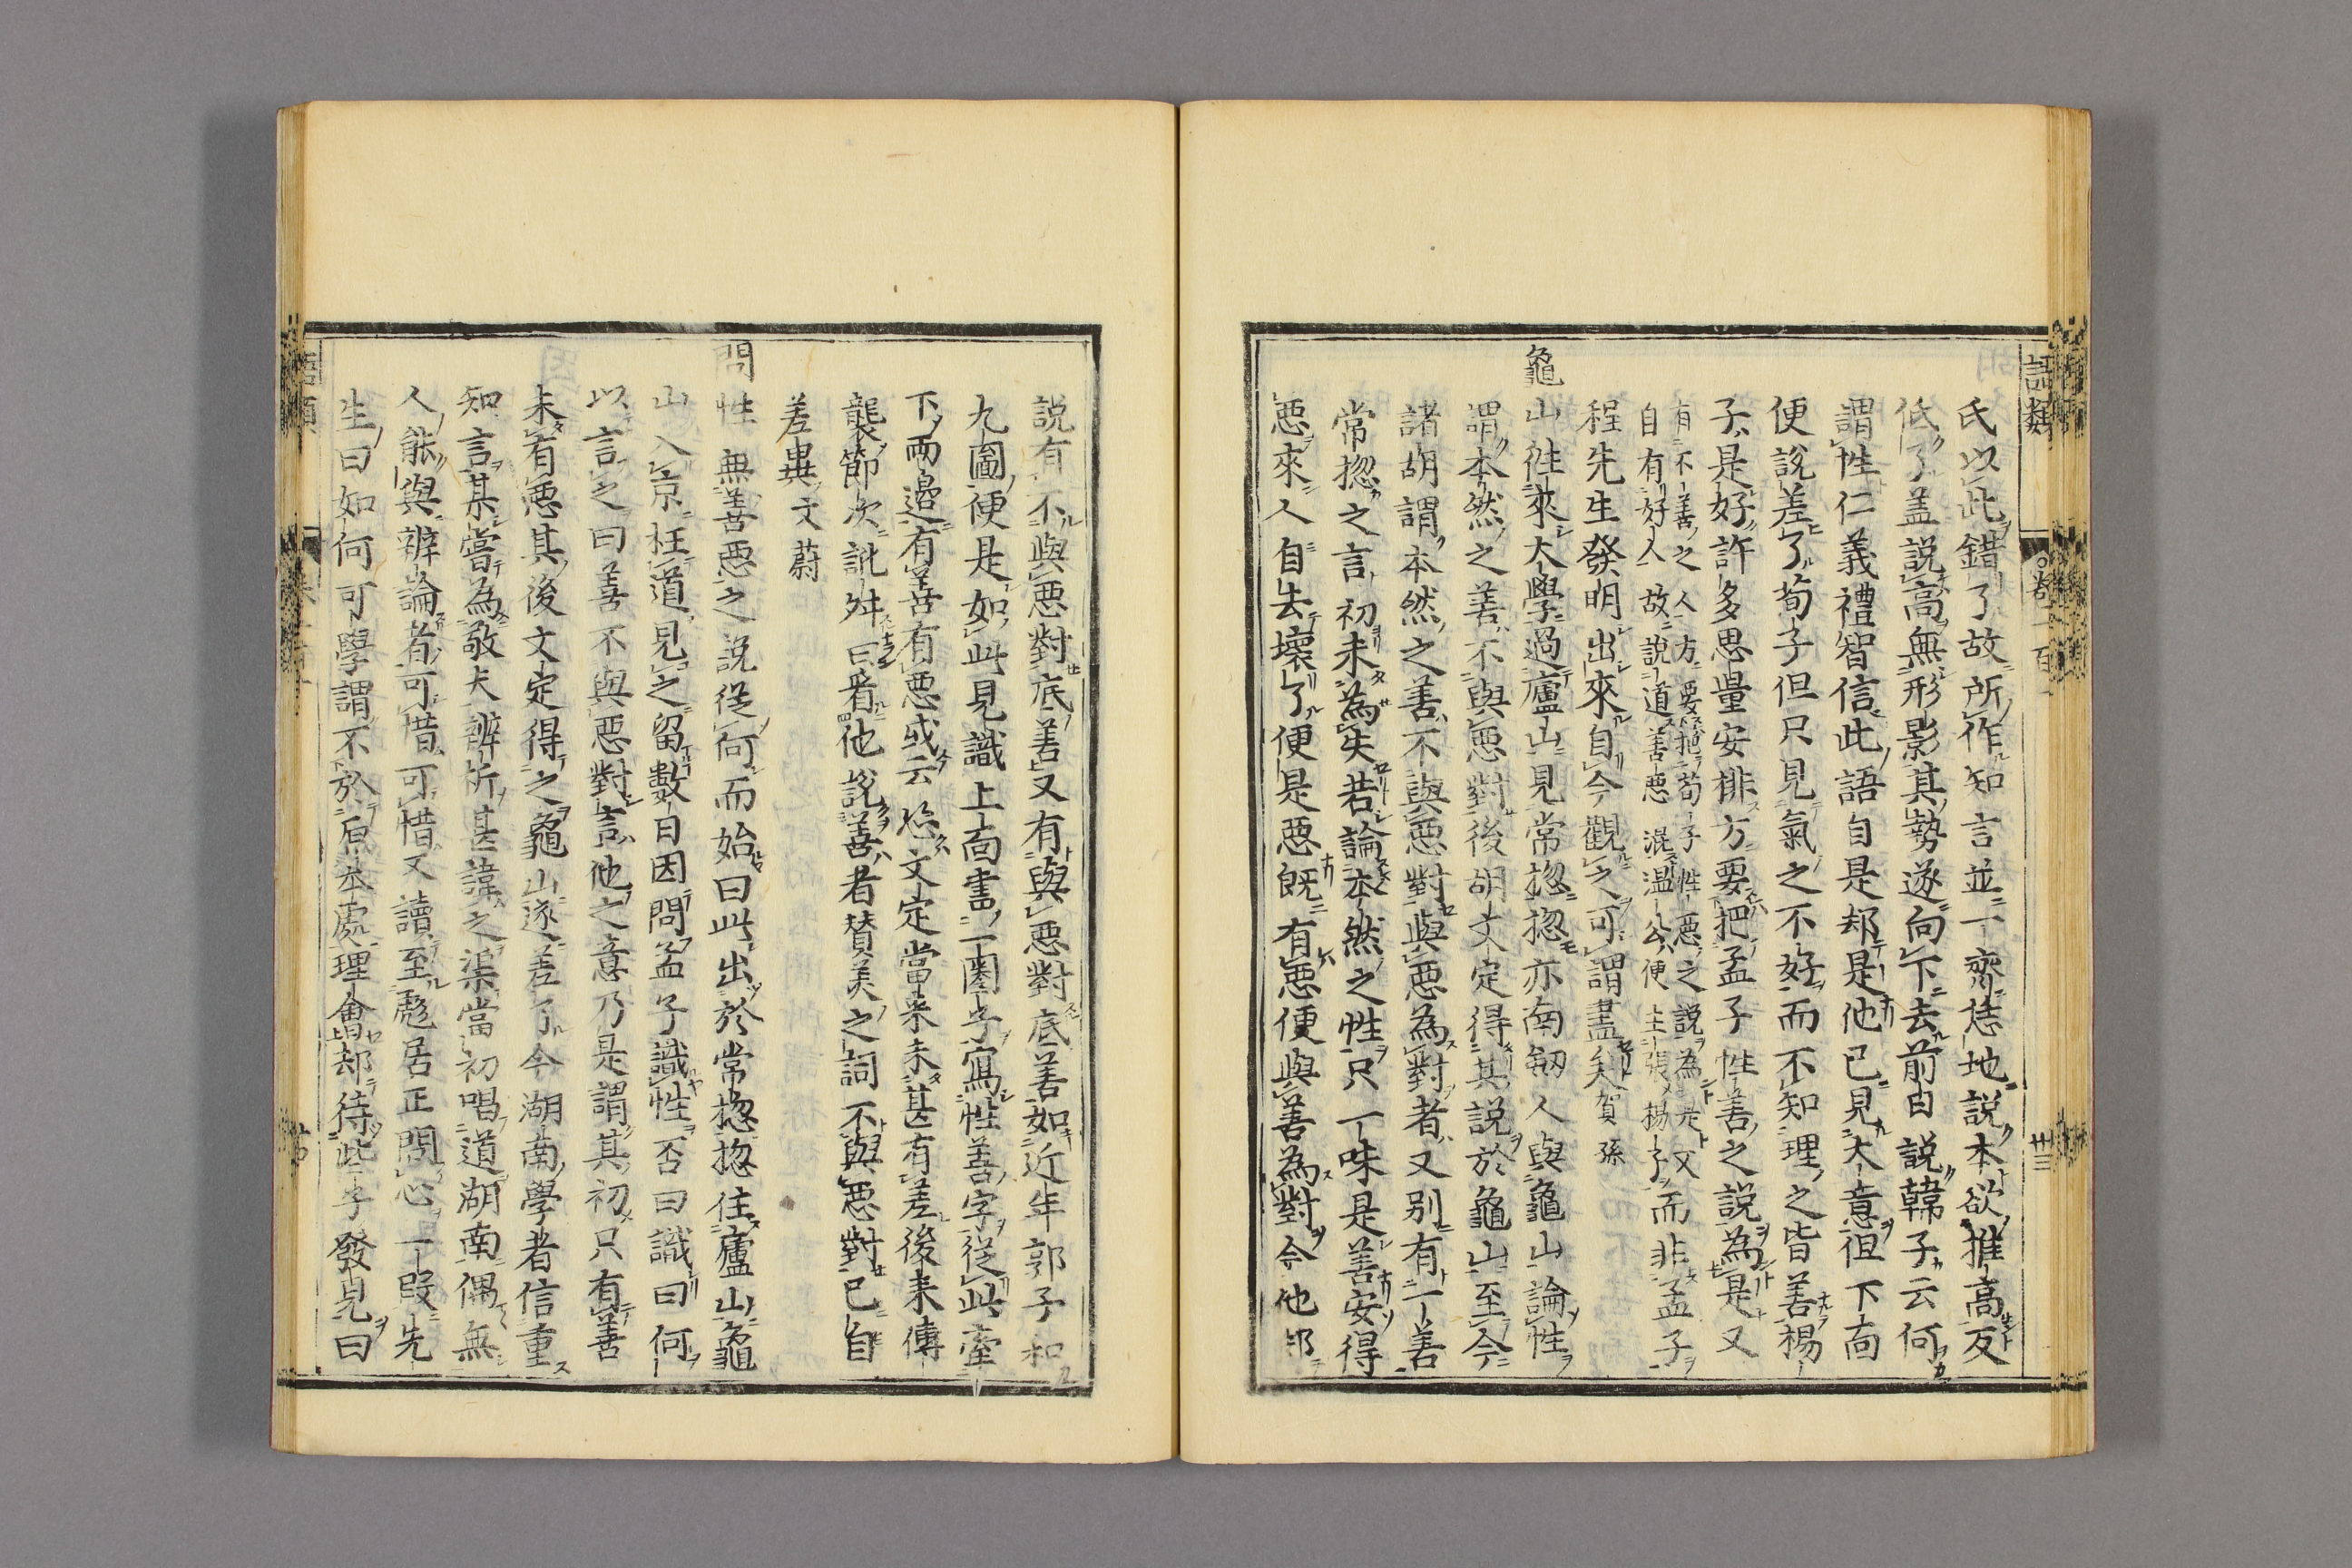 語類
卷一百一
廿三
氏以此錯了故所作知言並一齊恁地説本欲推高反
低了盖説高無形影其勢遂向下去前日説韓子云何
謂性仁義禮智信此語自是却是他已見大意但下面
便説差了荀子但只見氣之不好而不知理之皆善揚
子是好許多思量安排方要把孟子性善之説為是又
有不善之人方要把荀子性悪之説為是又
自有好人故説道善悪混温公便主張揚子而非孟子
程先生發明出來自今觀之可謂盡矣賀孫
龜山徃來太學過廬山見常惣惣亦南劔人與龜山論性
謂本然之善不與悪對後胡文定得其説於龜山至今
諸胡謂本然之善不與悪對與悪為對者又别有一善
常惣之言初未為失若論本然之性只一味是善安得
悪來人自去壞了便是悪既有悪便與善為對今他却
説有不與悪對底善又有與悪對底善如近年郭子和
九圖便是如此見識上面書一圏子寫性善字從此牽
下兩邉有善有悪或云恐文定當来未甚有差後来傳
襲節次訛舛曰看他説善者賛美之詞不與悪對已自
差異文蔚
問性無善悪之説從何而始曰此出於常惣惣住廬山龜
山入京枉道見之留數日因問孟子識性否曰識曰何
以言之曰善不與悪對言他之意乃是謂其初只有善
未有悪其後文定得之龜山遂差了今湖南學者信重
知言某嘗為敬夫辨析甚諱之渠當初唱道湖南偶無
人能與辨論者可惜可惜又讀至彪居正問心一段先
生曰如何可學謂不於原本處理㑹却待些子發見曰